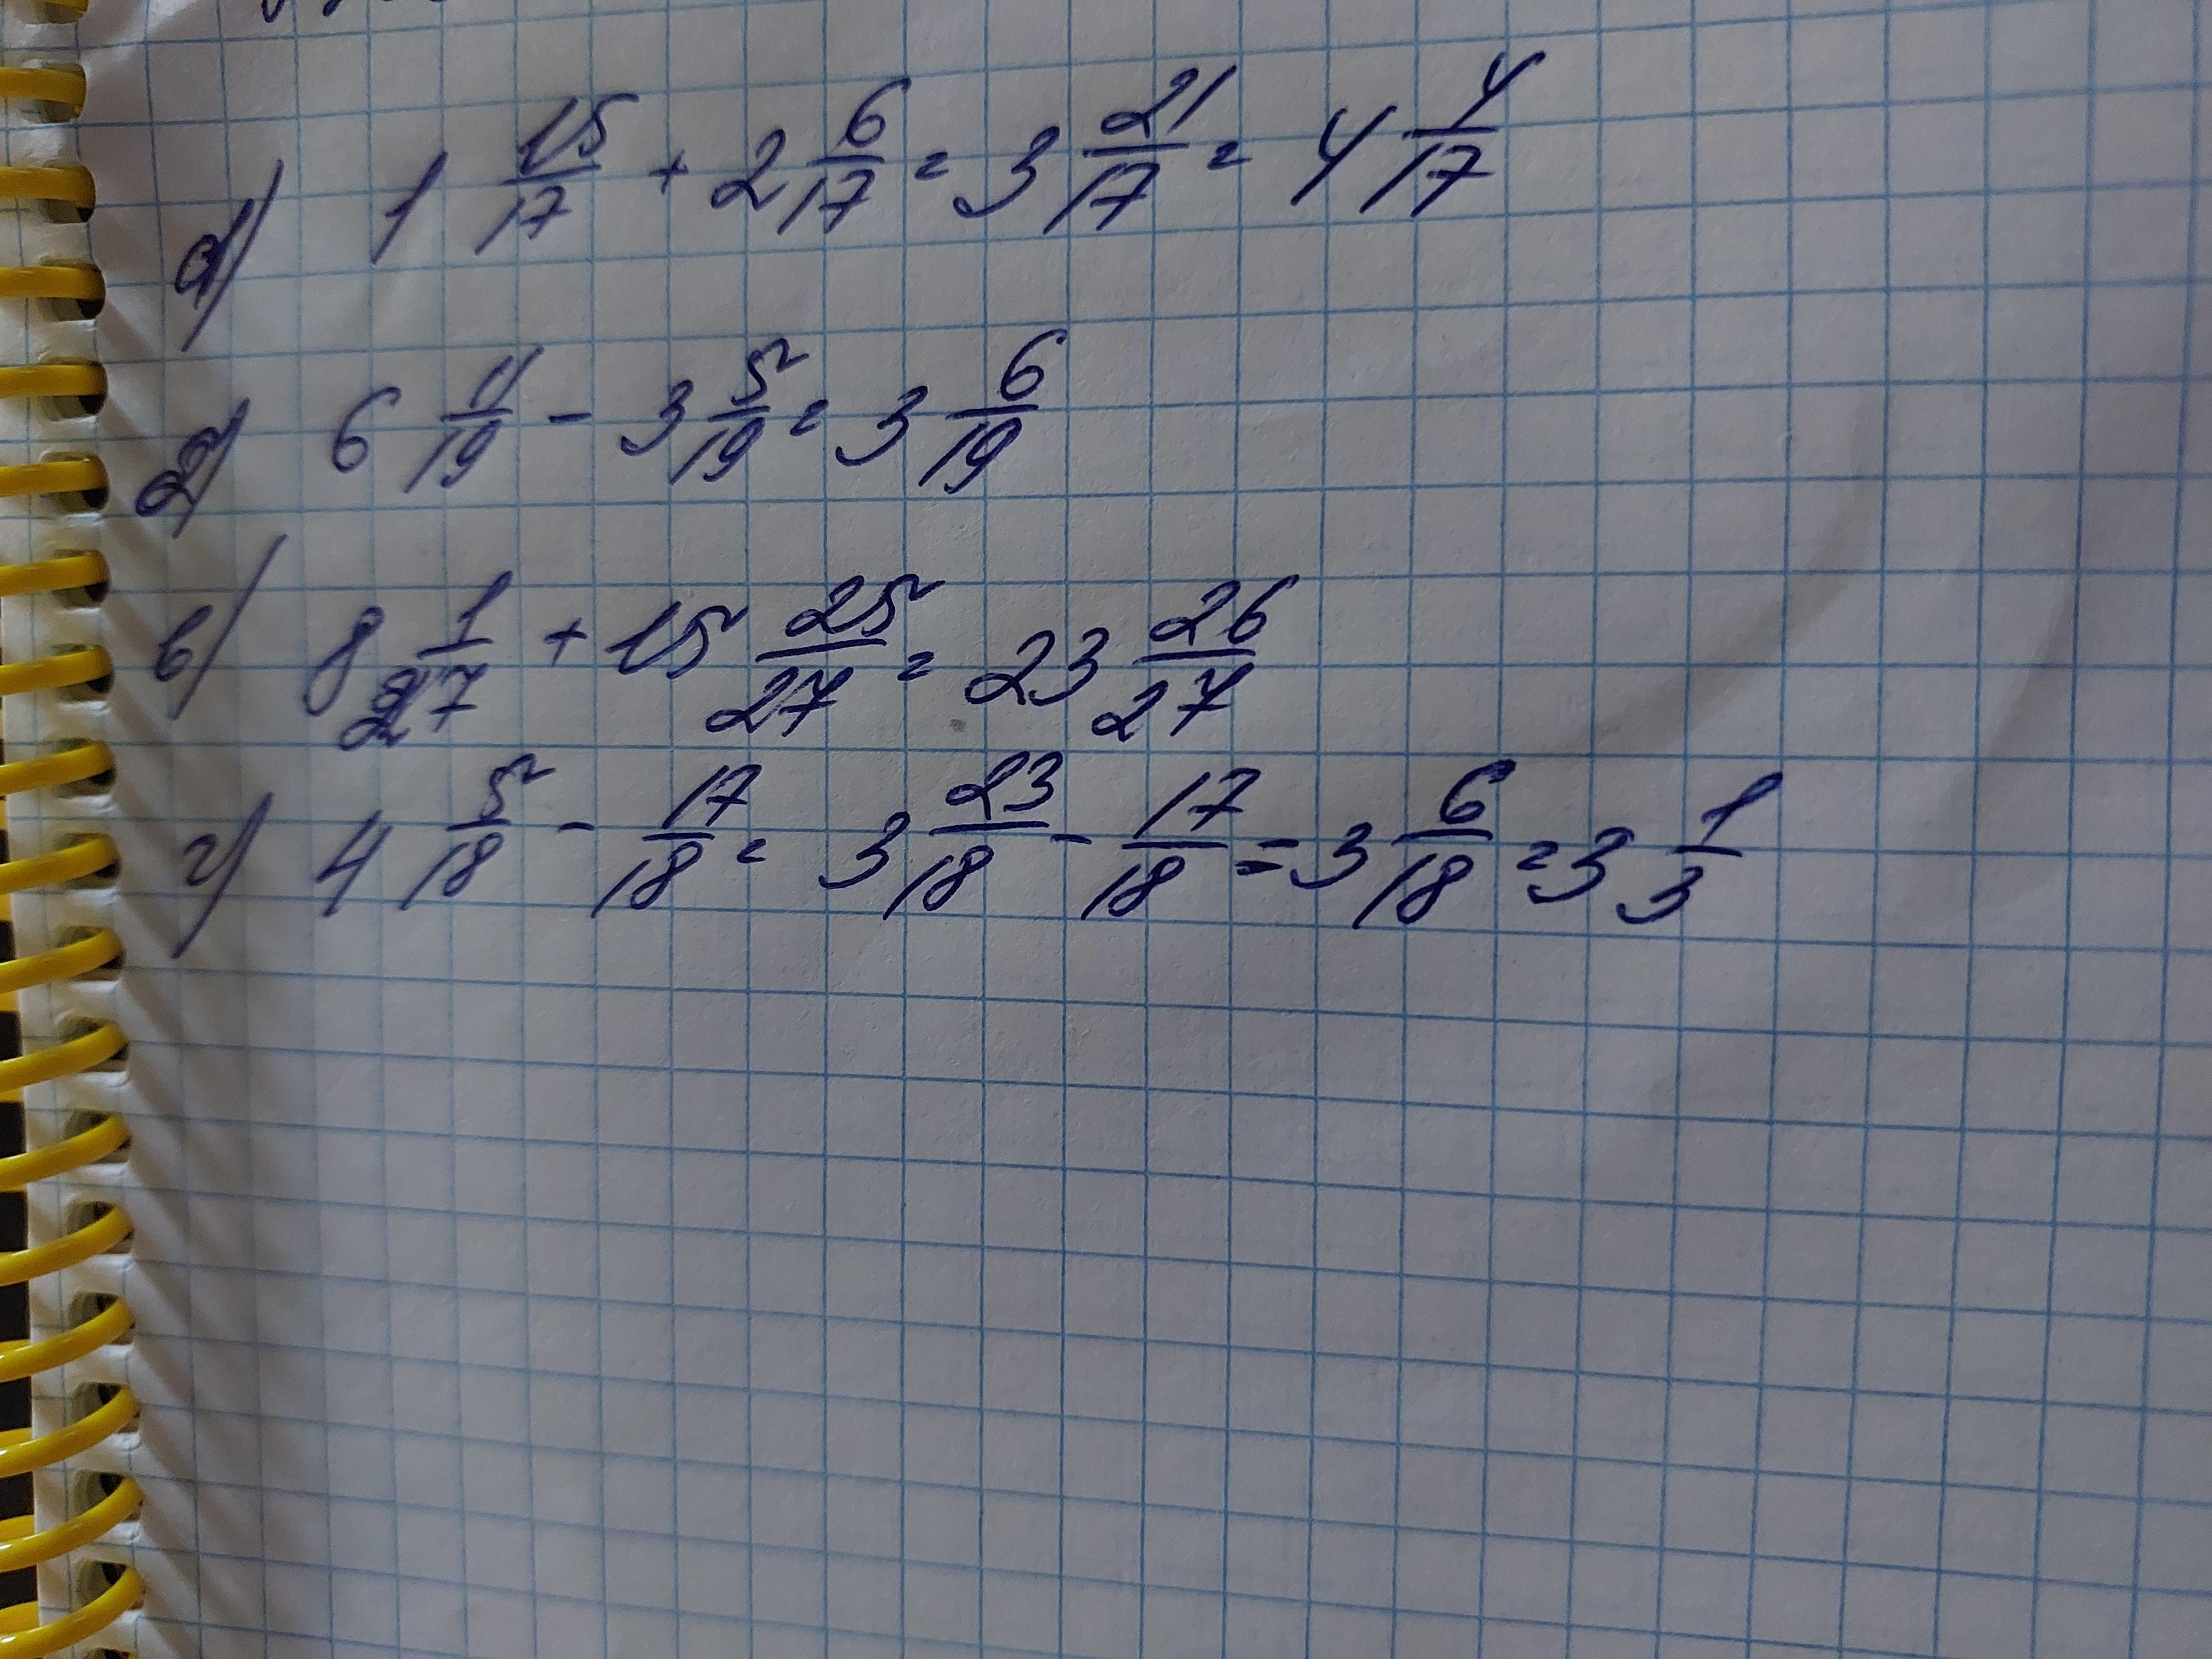 а) 1 15/17 + 2 6/17 = 3 21/17 = 4 4/17
д) 6 11/19 - 3 5/19 = 3 6/19
в) 8 1/27 + 15 25/27 = 23 26/27
г) 4 5/18 - 17/18 = 3 23/18 - 17/18 = 3 6/18 = 3 1/3